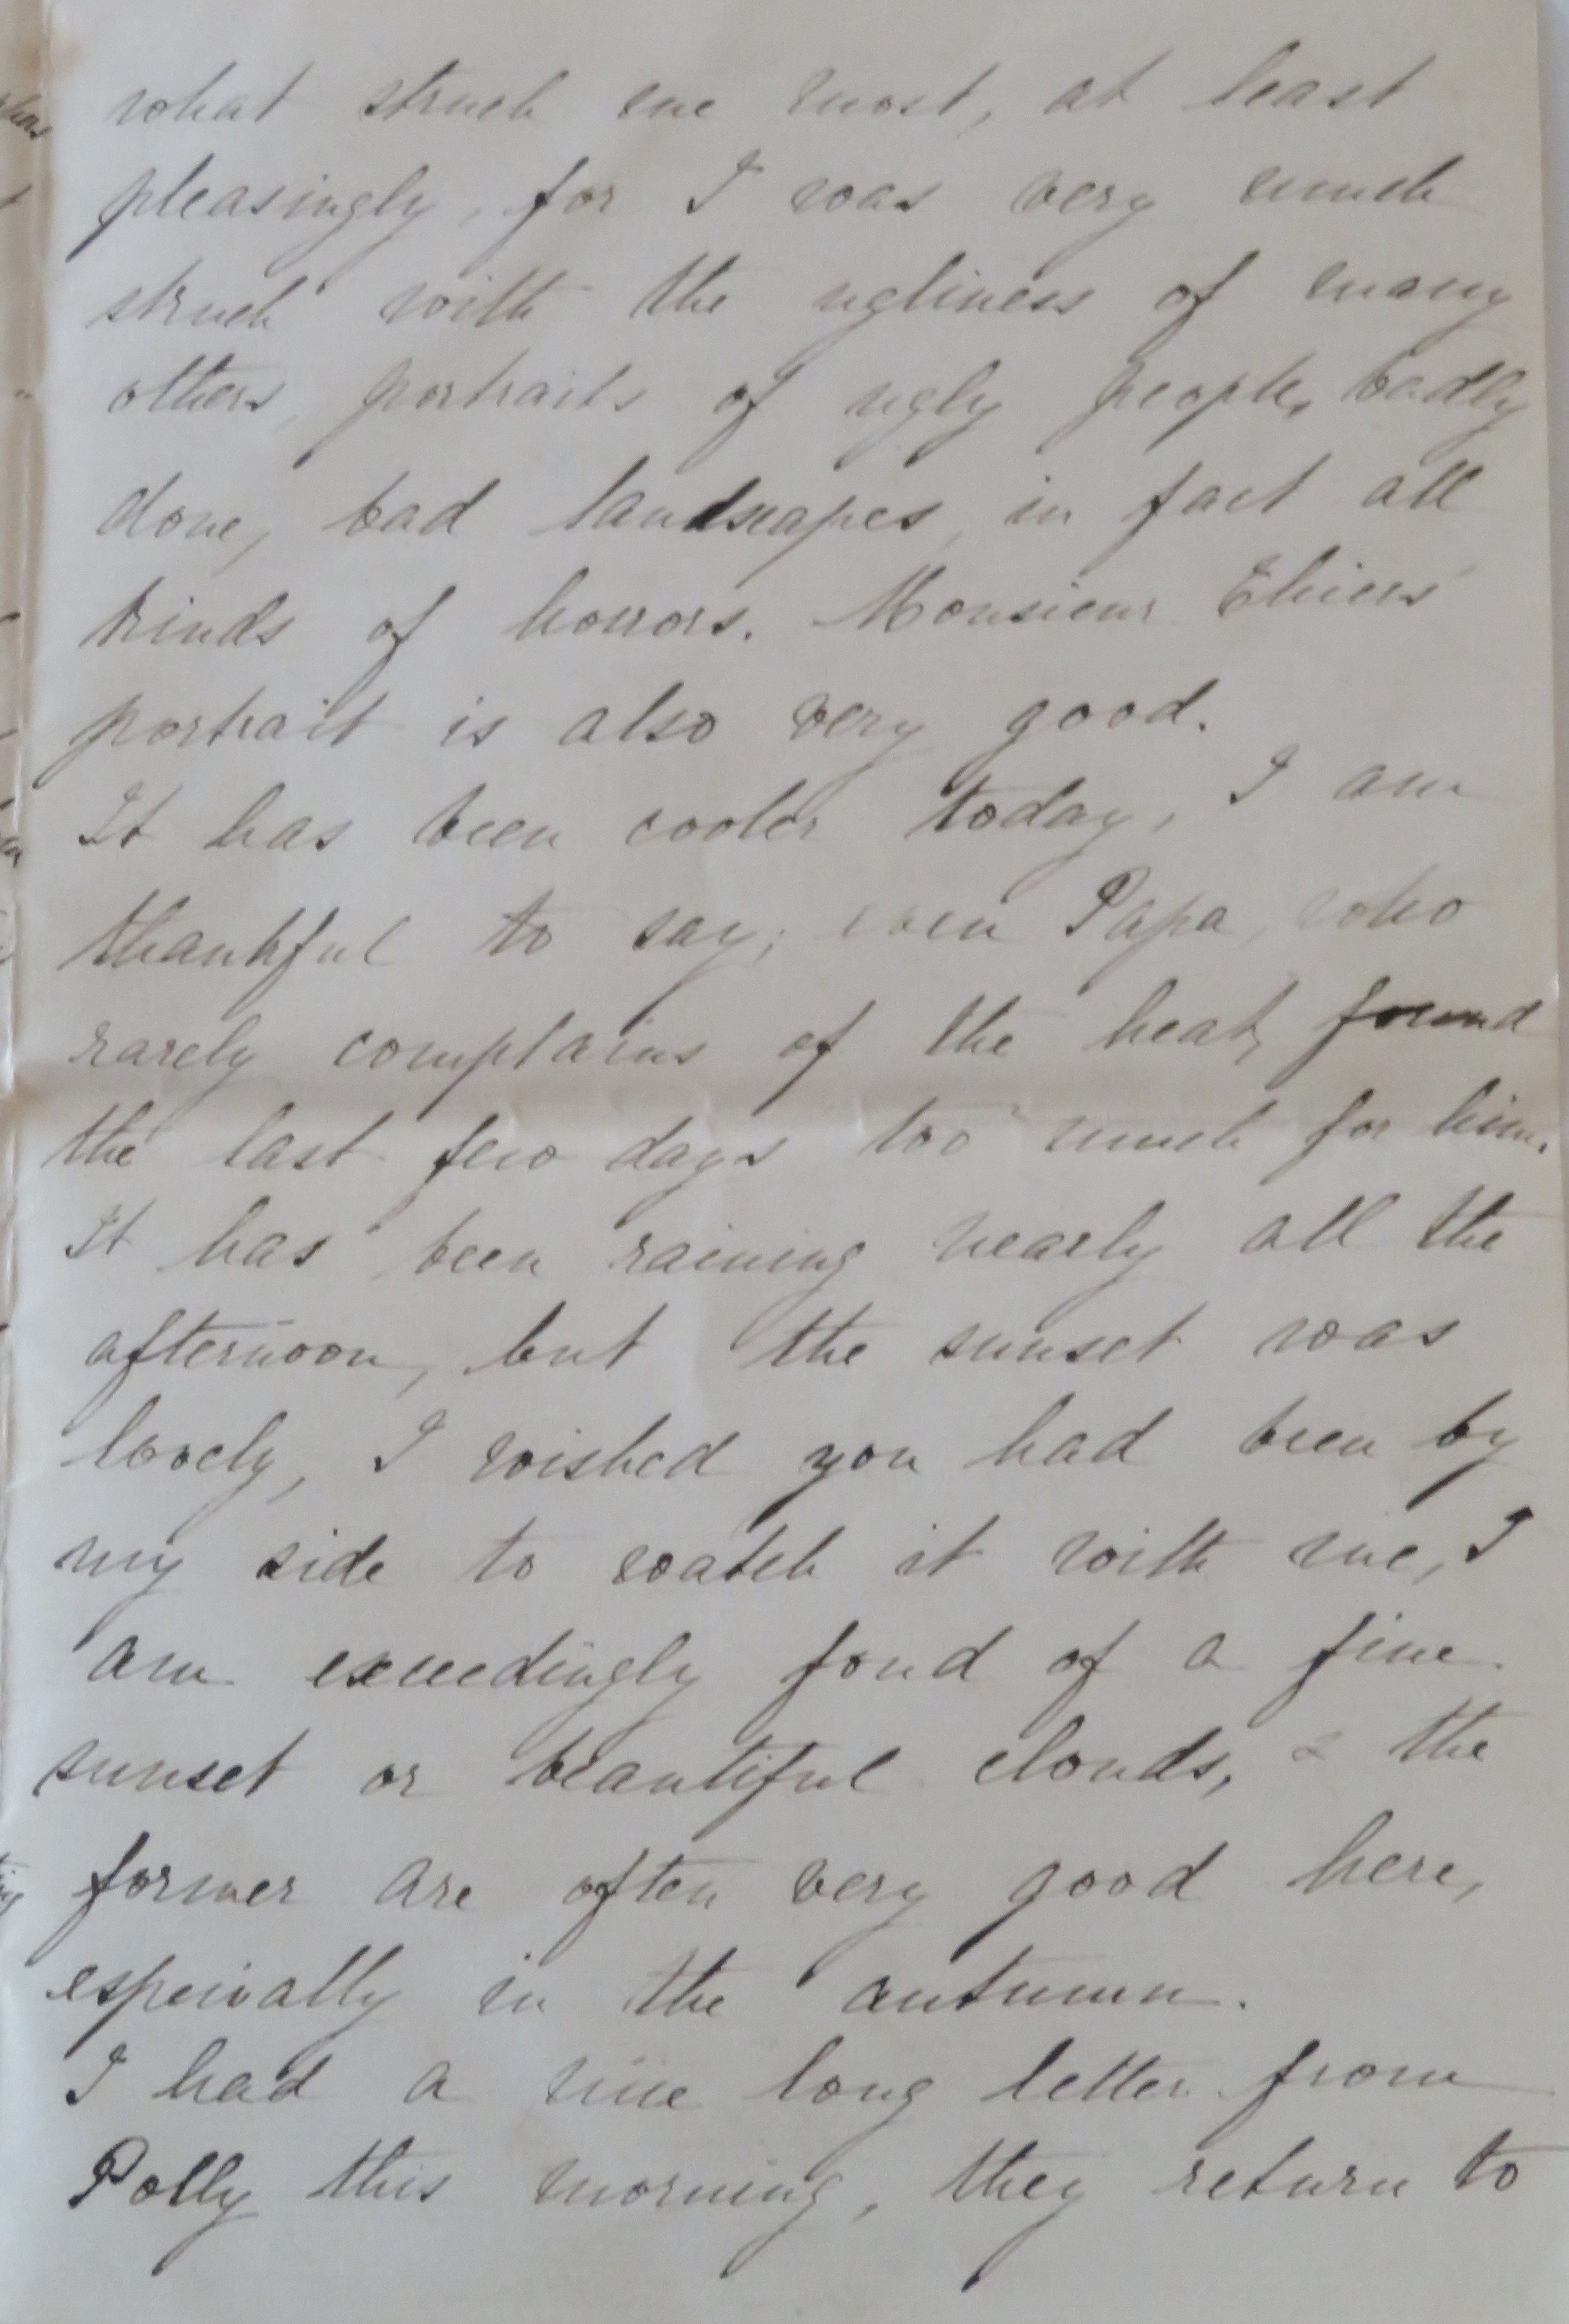 what struck me most, at least
pleasingly, for I was very much
struck with the ugliness of many
others, portraits of ugly people, badly
done, bad landscapes, in fact all
kinds of horrors. Monsieur Thiers'
portrait is also very good.
It has been cooler today, I am
thankful to say; even Papa, who
rarely complains of the heat, found
the last few days too much for him.
It has been raining nearly all the
afternoon, but the sunset was
lovely, I wished you had been by
my side to watch it with me, I
am exceedingly fond of a fine
sunset or beautiful clouds, & the
former are often very good here,
especially in the autumn.
I had a nice long letter from
Polly this morning, they return to